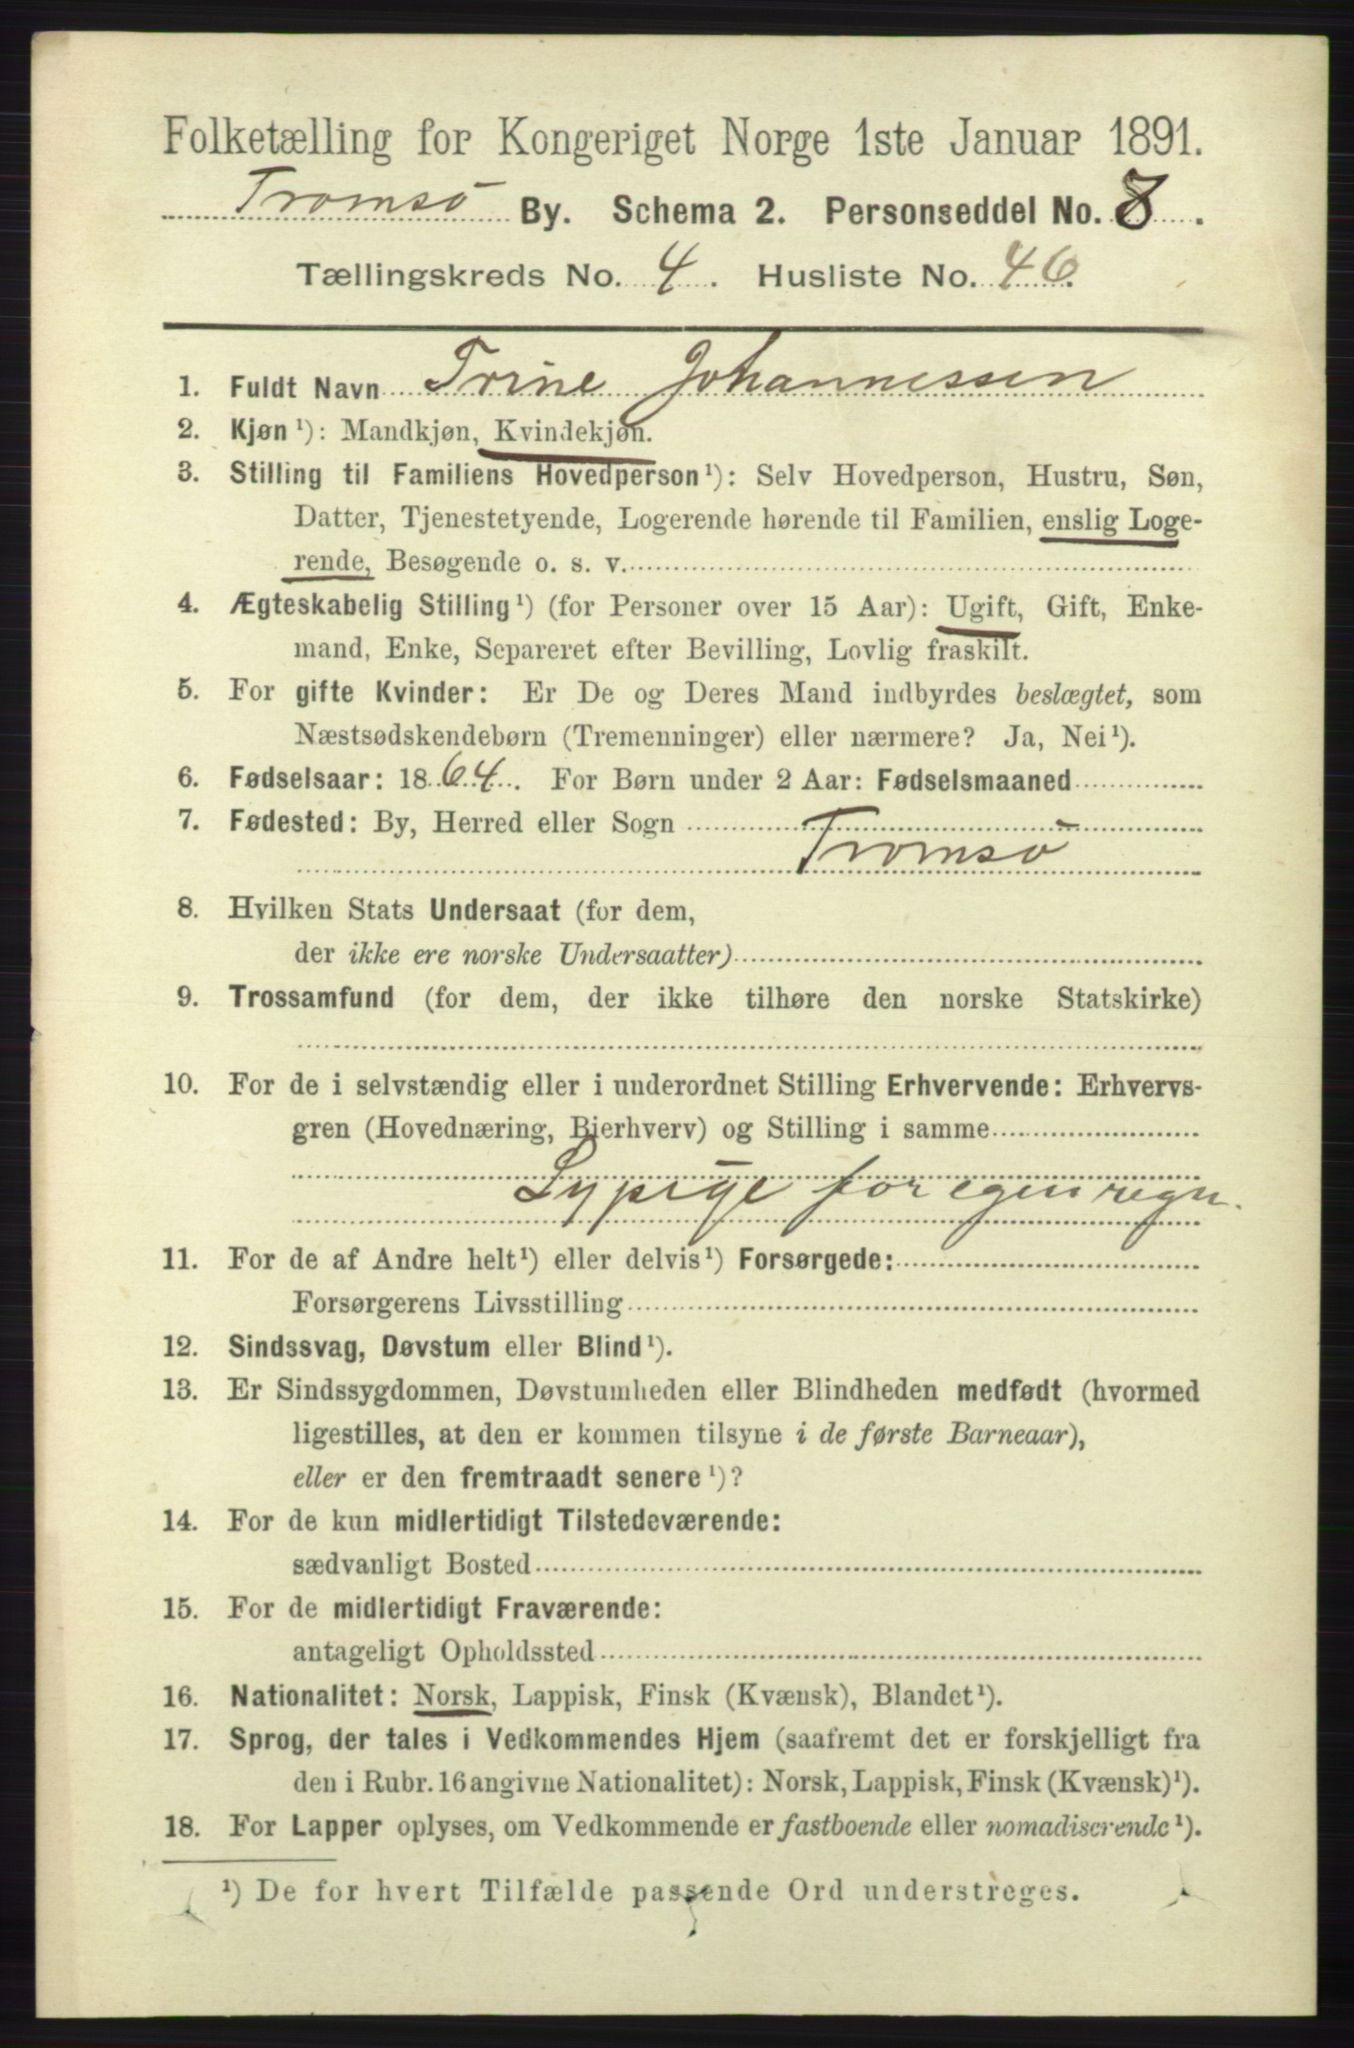 Folketælling for Kongeriget Norge 1ste Januar 1891.
Tromsø By. Schema 2. Personseddel No. 8.
Tællingskreds No. 4. Husliste No. 46.
1. Fuldt Navn Trine Johannessen
2. Kjøn¹): Mandkjøn, Kvindekjøn.
3. Stilling til Familiens Hovedperson¹): Selv Hovedperson, Hustru, Søn,
Datter, Tjenestetyende, Logerende hørende til Familien, enslig Loge-
rende, Besøgende o. s. v.
4. Ægteskabelig Stilling¹) (for Personer over 15 Aar): Ugift, Gift, Enke-
mand, Enke, Separeret efter Bevilling, Lovlig fraskilt.
5. For gifte Kvinder: Er De og Deres Mand indbyrdes beslægtet, som
Næstsødskendebørn (Tremenninger) eller nærmere? Ja, Nei¹).
6. Fødselsaar: 1864. For Børn under 2 Aar: Fødselsmaaned
7. Fødested: By, Herred eller Sogn
Tromsø
8. Hvilken Stats Undersaat (for dem,
der ikke ere norske Undersaatter)
9. Trossamfund (for dem, der ikke tilhøre den norske Statskirke)
10. For de i selvstændig eller i underordnet Stilling Erhvervende: Erhvervs-
gren (Hovednæring, Bierhverv) og Stilling i samme
Sypige for egen regn.
11. For de af Andre helt¹) eller delvis¹) Forsørgede:
Forsørgerens Livsstilling
12. Sindssvag, Døvstum eller Blind¹).
13. Er Sindssygdommen, Døvstumheden eller Blindheden medfødt (hvormed
ligestilles, at den er kommen tilsyne i de første Barneaar),
eller er den fremtraadt senere¹)?
14. For de kun midlertidigt Tilstedeværende:
sædvanligt Bosted
15. For de midlertidigt Fraværende:
antageligt Opholdssted
16. Nationalitet: Norsk, Lappisk, Finsk (Kvænsk), Blandet¹).
17. Sprog, der tales i Vedkommendes Hjem (saafremt det er forskjelligt fra
den i Rubr. 16 angivne Nationalitet): Norsk, Lappisk, Finsk (Kvænsk)¹).
18. For Lapper oplyses, om Vedkommende er fastboende eller nomadiserende¹).
¹) De for hvert Tilfælde passende Ord understreges.